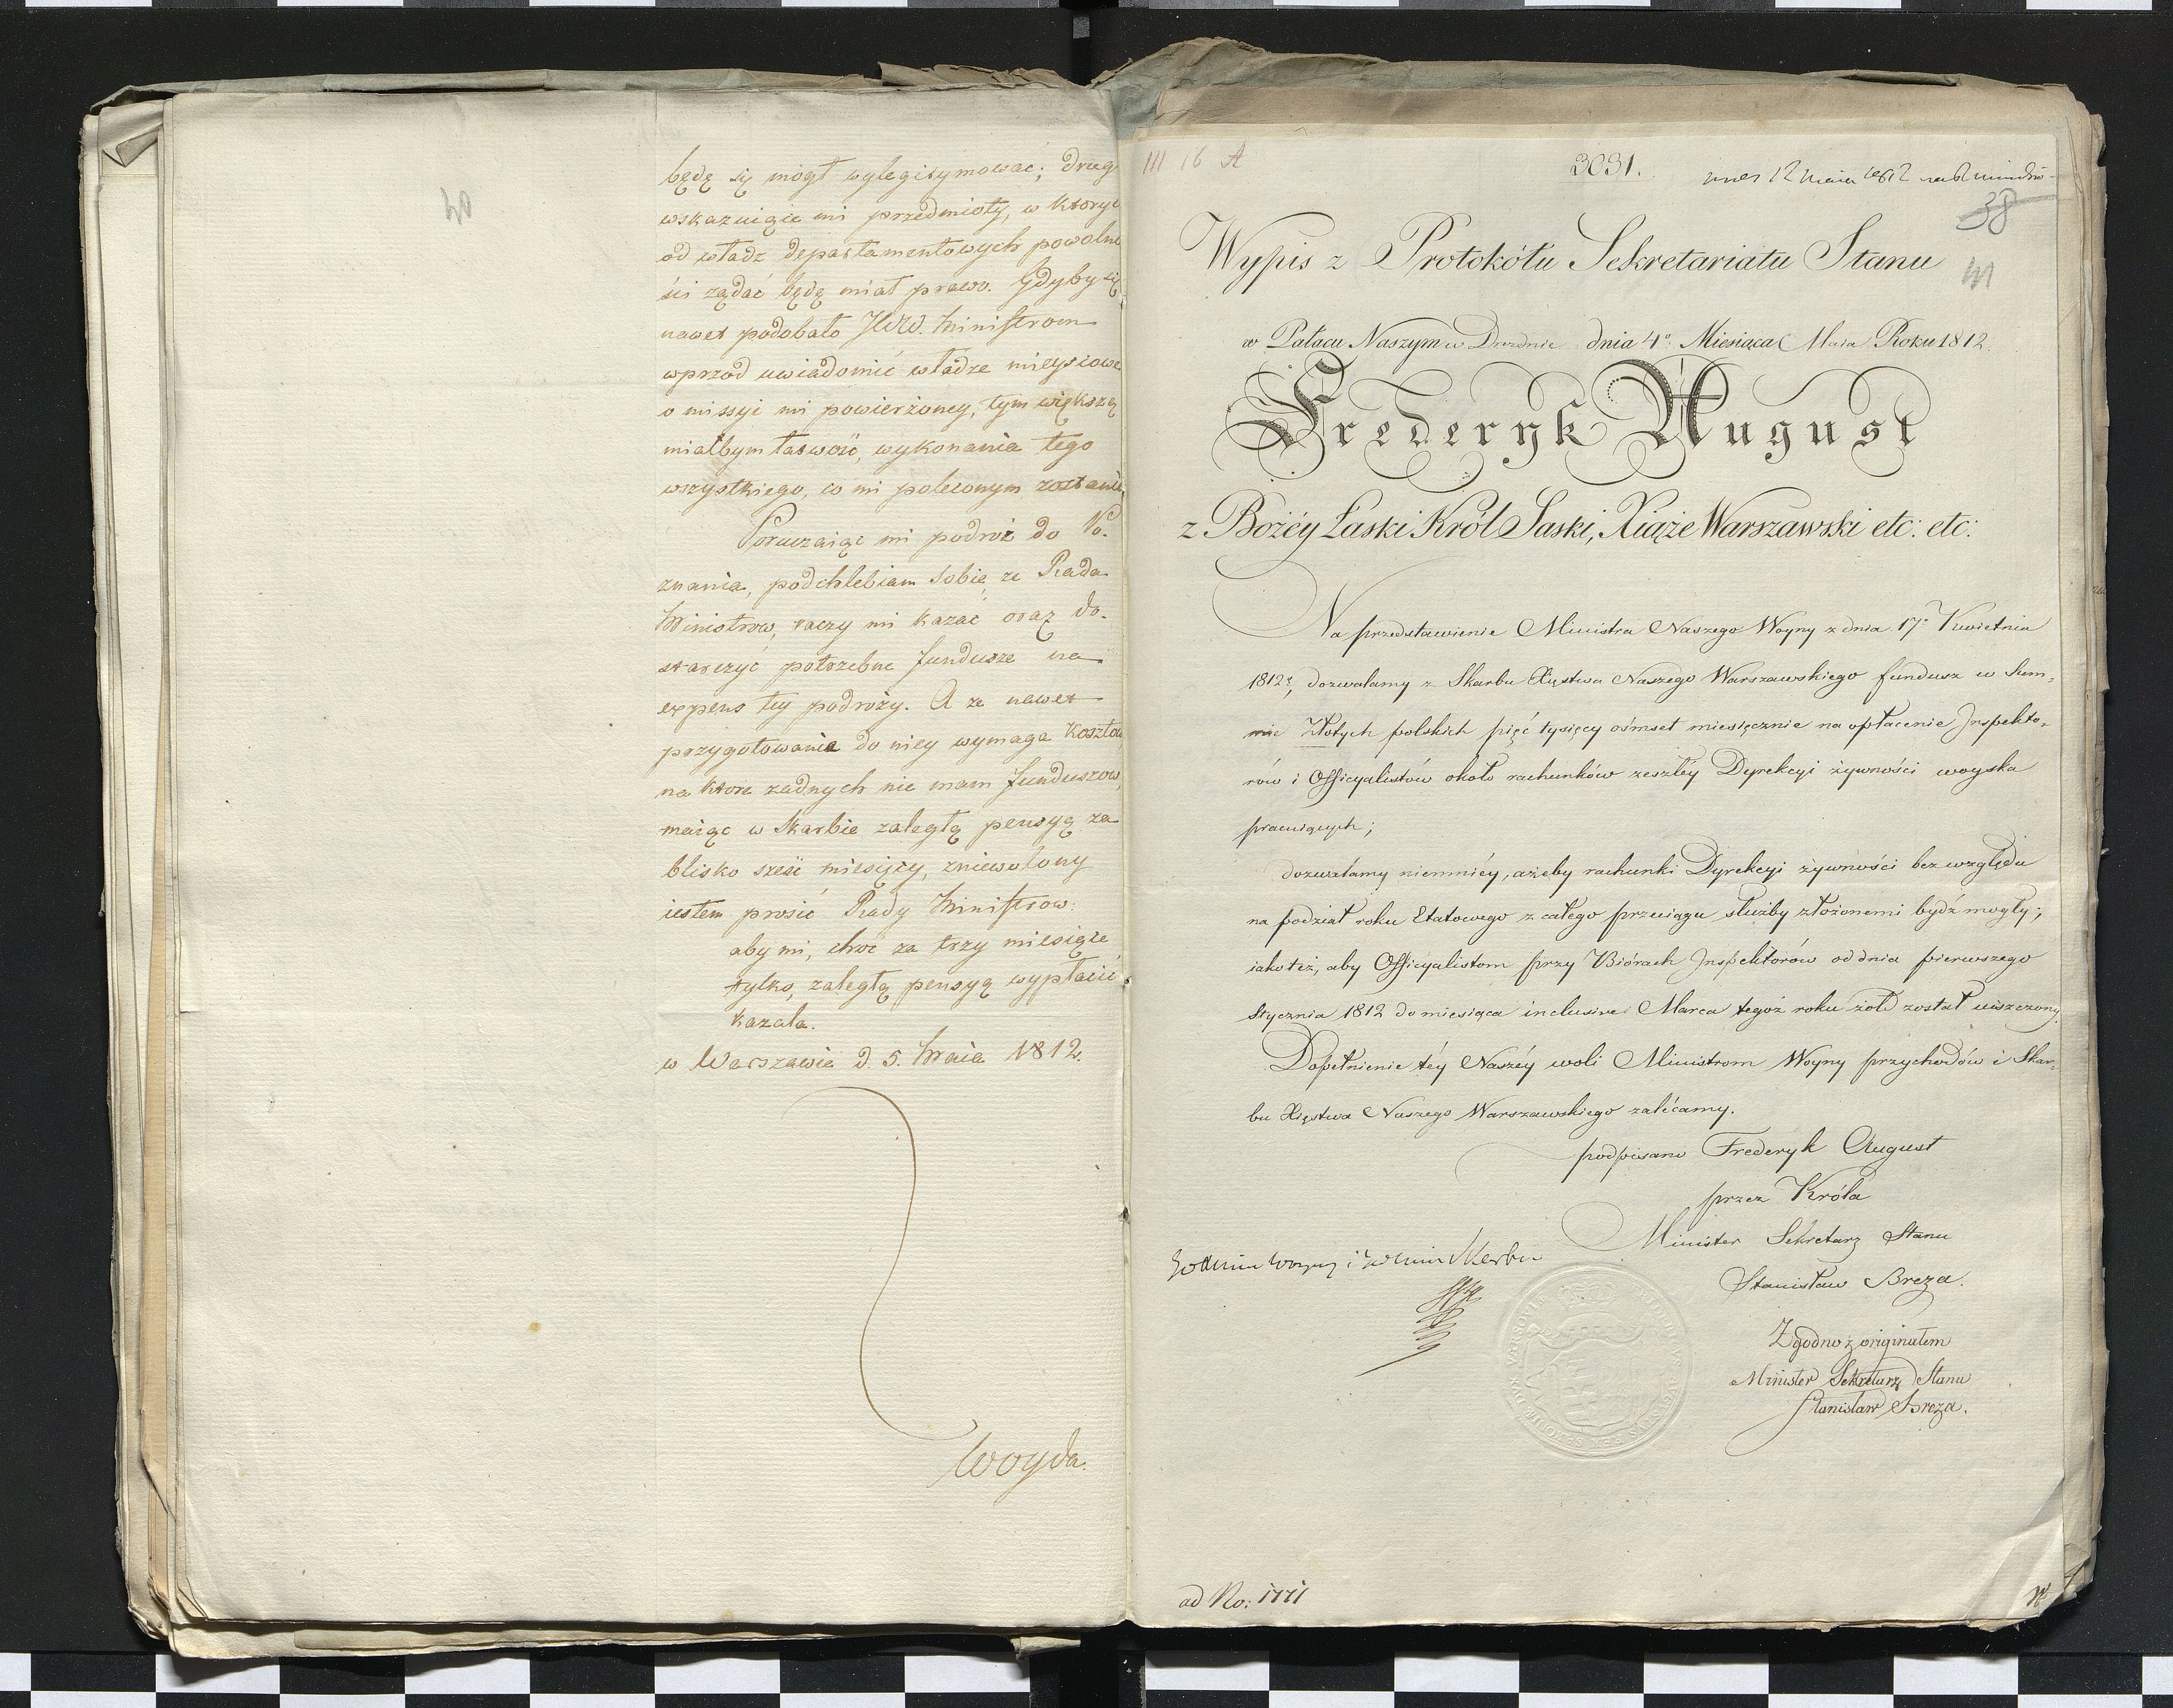 40
będę się mogł wylegitymować; drug
wskazuiąie mi przedmioty, w ktoryc
od władz departamentowych powolno
ści ządać będę miał prawo. Gdyby się
nawet podobało JWW. Ministrom
wprzod uwiadomić władze mieysiowe
o missyi mi powierżoney, tym większą
miałbym łatwość, wykonania tego
wszystkiego, co mi poleconym zostanie
Poruczaiąc mi podroż do Po-
znania, podchlebiam sobie, ze Rada
Ministrow, raczy mi kazać oraz do-
starczyć potrzebne fundusze na
expens tey podroży. A ze nawet
przygotowania do niey wymaga kosztow,
na ktore zadnych nie mam funduszow,
maiąc w Skarbie zaległą pensyą za
blisko sześć miesięcy, zniewolony
iestem prosić Rady Ministrow:
aby mi, choć za trzy miesiące
tylko, zaległą pensyą wypłacić
kazala.
w Warszawie d. 5. Maia 1812.
Woyda.
III 16 A
3031.
12 Maia 1812
38
41
Wypis z Protokółu Sekretariatu Stanu
w Pałacu Naszym w Dreznie dnia 4o. Miesiąca Maia Roku 1812.
Frederyk August
z Bożéy Łaski Król Saski, Xiąże Warszawski etc: etc:
Na przedstawienie Ministra Naszego Woyny z dnia 17o Kwietnia
1812r, dozwalamy z Skarbu Xięstwa Naszego Warszawskiego fundusz w Sum-
mie Złotych polskich pięć tysięcy ośmset miesięcznie na opłacenie Inspekto-
rów i Officyalistów około rachunków zeszłéy Dyrekcyi żywności woyska
pracuiących;
dozwalamy niemniéy, ażeby rachunki Dyrekcyi żywności bez względu
na podział roku Etatowego z całego przeciągu służby złożonemi bydź mogły;
iakoteż, aby Officyalistom przy Biórach Inspektorów od dnia pierwszego
Stycznia 1812 do miesiąca inclusive Marca tegoż roku żołd został uiszczony.
Dopełnienie téy Naszéy woli Ministrom Woyny przychodów i Skar-
bu Xięstwa Naszego Warszawskiego zalécamy.
podpisano Frederyk August
przez Króla
Minister Sekretarz Stanu
Stanisław Breza.
do Min Woyny i do Min Skarbu
Zgodno z originałem
Minister Sekretarz Stanu
Stanisław Breza.
ad No: 1771